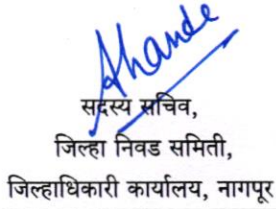 सदस्य सचिव,
जिल्हा निवड समिती,
जिल्हाधिकारी कार्यालय, नागपूर